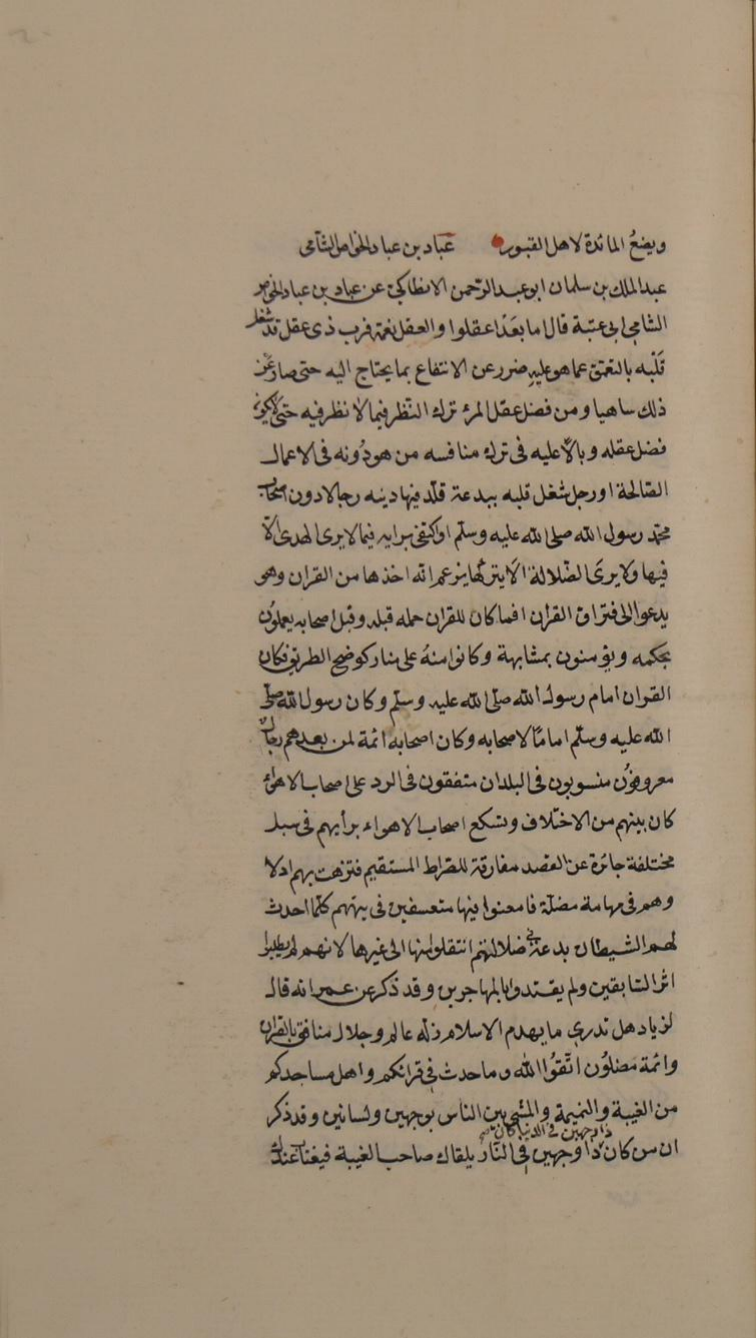 ويضعُ المائدة لاهل القبور عبّاد بن عباد الخواص الشامى
عبد الملك بن سلمان ابو عبد الرحمن الانطاكى عن عباد بن عباد الخواص
الشامى ابى عتبة قال اما بعَد اعقلوا والعقل نعمة فرب ذى عقل قد شغل
قلبه بالتعمق عما هو عليه ضرر عن الانتفاع بما يحتاج اليه حتى صار عن
ذلك ساهيا ومن فضل عقل المرء ترك النّظر فيما لا نظر فيه حتى لا يكون
فضل عقله وبالا عليه فى ترك منافسه من هو دُونه فى الاعمال
الصّالحة او رجل شغل قلبه ببدعة قلّد فيها دينه رجالا دون اصحاب
محمّد رسول الله صلى الله عليه وسلم او اكتفى برايه فيما لا يرى الهدى الّا
فيها ولا يرىَ الضّلالة الّا بتركها يزعم انّه اخذها من القران وهو
يدعوا الى فتراق القران افما كان للقران حمله قبله وقبل اصحابه يعملون
بحكمه ويؤمنون بمشابهة وكانوا منهُ على منار كوضح الطريق فكان
القران امام رسول الله صلى الله عليه وسلم وكان رسول الله صلى
الله عليه وسلم امامًا لاصحابه وكان اصحابه ائمة لمن بعدهم رجال
معروفون منسوبون فى البلدان متفقون فى الرد على اصحاب الاهواء
كان بينهم من الاختلاف وتسكع اصحاب الاهواء برأيهم فى سبل
مختلفة جائرة عن القصد مفارقة للصّراط المستقيم فتوّهت بهم ادلا
وهم فى مهامة مضلّة فامعنوا فيها متعسفين فى تيههم كلّما احدث
لهم الشيطان بدعة فى ضلالتهم انتقلوا منها الى غيرها لانهم لم يطلبوا
اثر السّابقين ولم يقتدوا بالمهاجرين وقد ذكر عن عمر انه قال
لزياد هل تدرى ما يهدم الاسلام زلّه عالم وجدال منافق بالقران
وائمة مضلّون اتّقوُا الله وما حدث فى قرائكم واهل مساجدكم
من الغيبة والنميمة والمشى بين الناس بوجهين ولسانين وقد ذكر
ذا وجهين فى الدنيا كان
ان من كان ذا وجهين فى النّار يلقاك صاحب الغيبة فيغتاب عندك